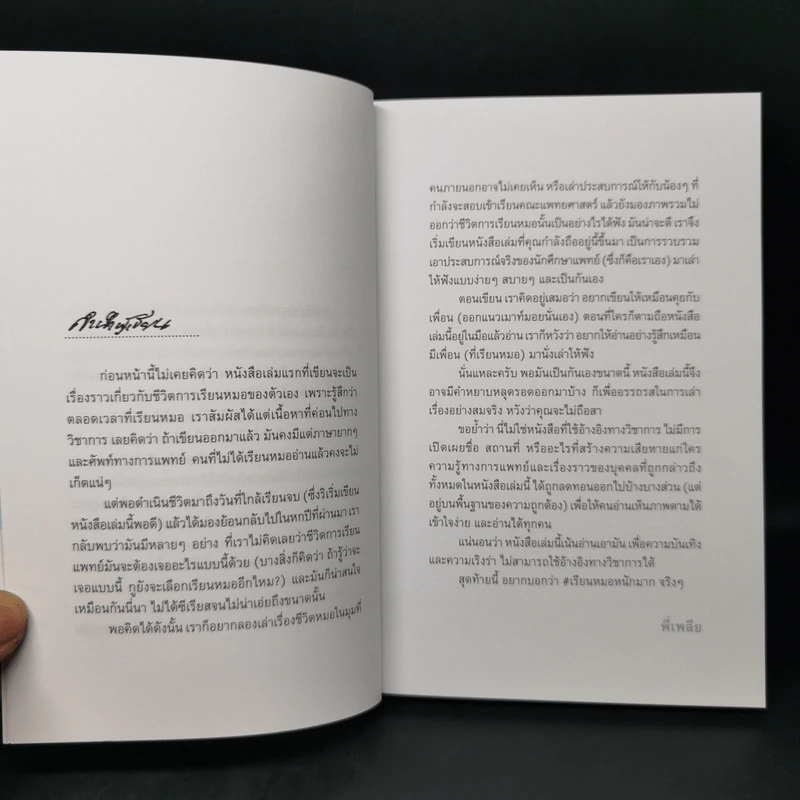 คำนำผู้เขียน
ก่อนหน้านี้ไม่เคยคิดว่า หนังสือเล่มแรกที่เขียนจะเป็น
เรื่องราวเกี่ยวกับชีวิตการเรียนหมอของตัวเอง เพราะรู้สึกว่า
ตลอดเวลาที่เรียนหมอ เราสัมผัสได้แต่เนื้อหาที่ค่อนไปทาง
วิชาการ เลยคิดว่า ถ้าเขียนออกมาแล้ว มันคงมีแต่ภาษายากๆ
และศัพท์ทางการแพทย์ คนที่ไม่ได้เรียนหมออ่านแล้วคงจะไม่
เก็ตแน่ๆ
แต่พอดำเนินชีวิตมาถึงวันที่ใกล้เรียนจบ (ซึ่งริเริ่มเขียน
หนังสือเล่มนี้พอดี) แล้วได้มองย้อนกลับไปในหกปีที่ผ่านมา เรา
กลับพบว่ามันมีหลายๆ อย่าง ที่เราไม่คิดเลยว่าชีวิตการเรียน
แพทย์มันจะต้องเจออะไรแบบนี้ด้วย (บางสิ่งก็คิดว่า ถ้ารู้ว่าจะ
เจอแบบนี้ กูยังจะเลือกเรียนหมออีกไหม?) และมันก็น่าสนใจ
เหมือนกันนี่นา ไม่ได้ซีเรียสจนไม่น่าเอ่ยถึงขนาดนั้น
พอคิดได้ดังนั้น เราก็อยากลองเล่าเรื่องชีวิตหมอในมุมที่
คนภายนอกอาจไม่เคยเห็น หรือเล่าประสบการณ์ให้กับน้องๆ ที่
กำลังจะสอบเข้าเรียนคณะแพทยศาสตร์ แล้วยังมองภาพรวมไม่
ออกว่าชีวิตการเรียนหมอนั้นเป็นอย่างไรได้ฟัง มันน่าจะดี เราจึง
เริ่มเขียนหนังสือเล่มที่คุณกำลังถืออยู่นี้ขึ้นมา เป็นการรวบรวม
เอาประสบการณ์จริงของนักศึกษาแพทย์ (ซึ่งก็คือเราเอง) มาเล่า
ให้ฟังแบบง่ายๆ สบายๆ และเป็นกันเอง
ตอนเขียน เราคิดอยู่เสมอว่า อยากเขียนให้เหมือนคุยกับ
เพื่อน (ออกแนวเมาท์มอยนั่นเอง) ตอนที่ใครก็ตามถือหนังสือ
เล่มนี้อยู่ในมือแล้วอ่าน เราก็หวังว่า อยากให้อ่านอย่างรู้สึกเหมือน
มีเพื่อน (ที่เรียนหมอ) มานั่งเล่าให้ฟัง
นั่นแหละครับ พอมันเป็นกันเองขนาดนี้ หนังสือเล่มนี้จึง
อาจมีคำหยาบหลุดรอดออกมาบ้าง ก็เพื่ออรรถรสในการเล่า
เรื่องอย่างสมจริง หวังว่าคุณจะไม่ถือสา
ขอย้ำว่า นี่ไม่ใช่หนังสือที่ใช้อ้างอิงทางวิชาการ ไม่มีการ
เปิดเผยชื่อ สถานที่ หรืออะไรที่สร้างความเสียหายแก่ใคร
ความรู้ทางการแพทย์และเรื่องราวของบุคคลที่ถูกกล่าวถึง
ทั้งหมดในหนังสือเล่มนี้ ได้ถูกลดทอนออกไปบ้างบางส่วน (แต่
อยู่บนพื้นฐานของความถูกต้อง) เพื่อให้คนอ่านเห็นภาพตามได้
เข้าใจง่าย และอ่านได้ทุกคน
แน่นอนว่า หนังสือเล่มนี้เน้นอ่านเอามัน เพื่อความบันเทิง
และความเริงร่า ไม่สามารถใช้อ้างอิงทางวิชาการได้
สุดท้ายนี้ อยากบอกว่า #เรียนหมอหนักมาก จริงๆ
พี่เพลีย